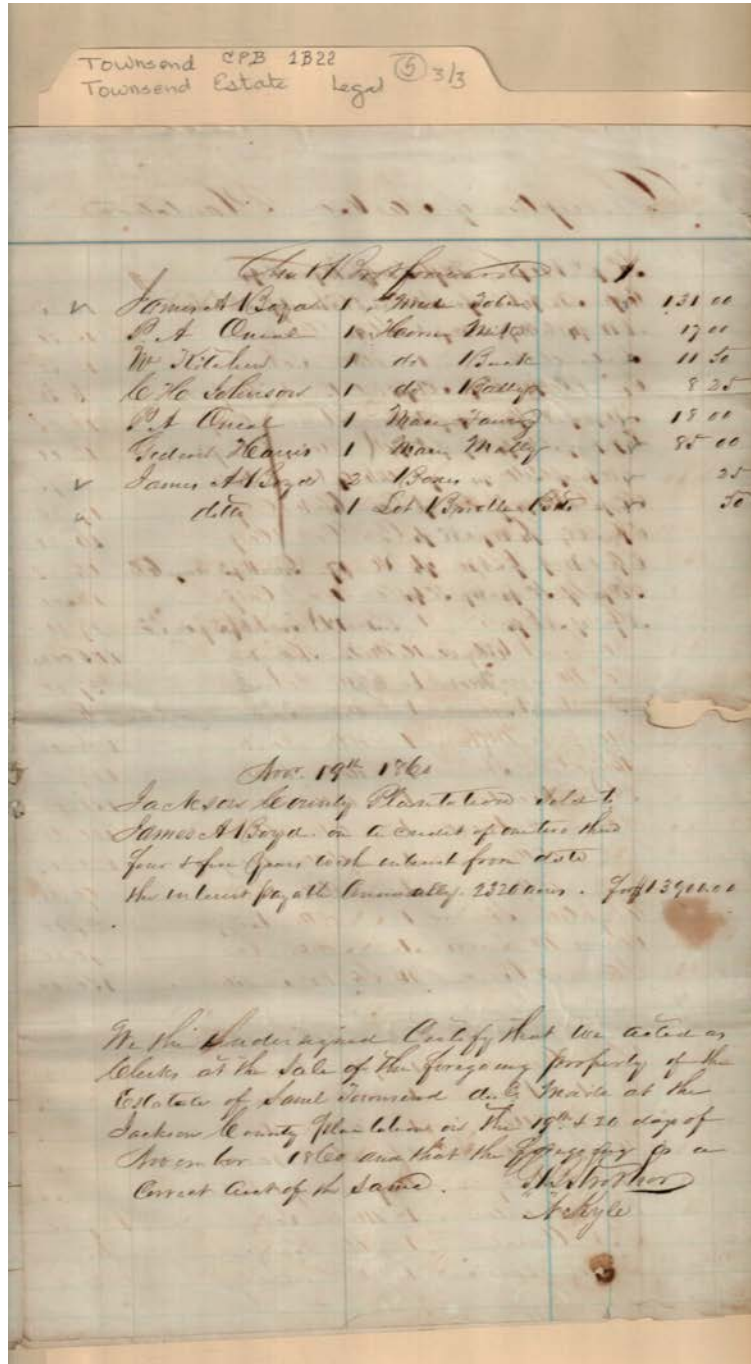 Townsend CPB 1B22
Townsend Estate Legal 5 3/3
Amt Brot forward
James A Boyd 1 John 131 00
P. A Oneal 1 Horse Mike 17 00
W Kitchens 1 do Buck 11 50
C H Johnson 1 do 8 25
P. A Oneal 1 Mare Fanny 18 00
Gideon Harris 1 Mare Molly 85 00
James A Boyd 2 Boxes 25
ditto 1 Lot Bridle Bits 50
Nov. 19th 1860
Jackson County Plantation Sold to
James A Boyd on a credit of one two three
four & five years with interest from date
the interest payable annually. 2320 acres. For $13900.00
We the undersigned Certify that we acted as
Clerks at the Sale of the foregoing property of the
Estatate of Saml Townsend decd Made at the
Jackson County plantation on the 19th & 20 days of
November 1860 and that the foregoing is a
Correct Acct of the Same. Strother
A Kyle